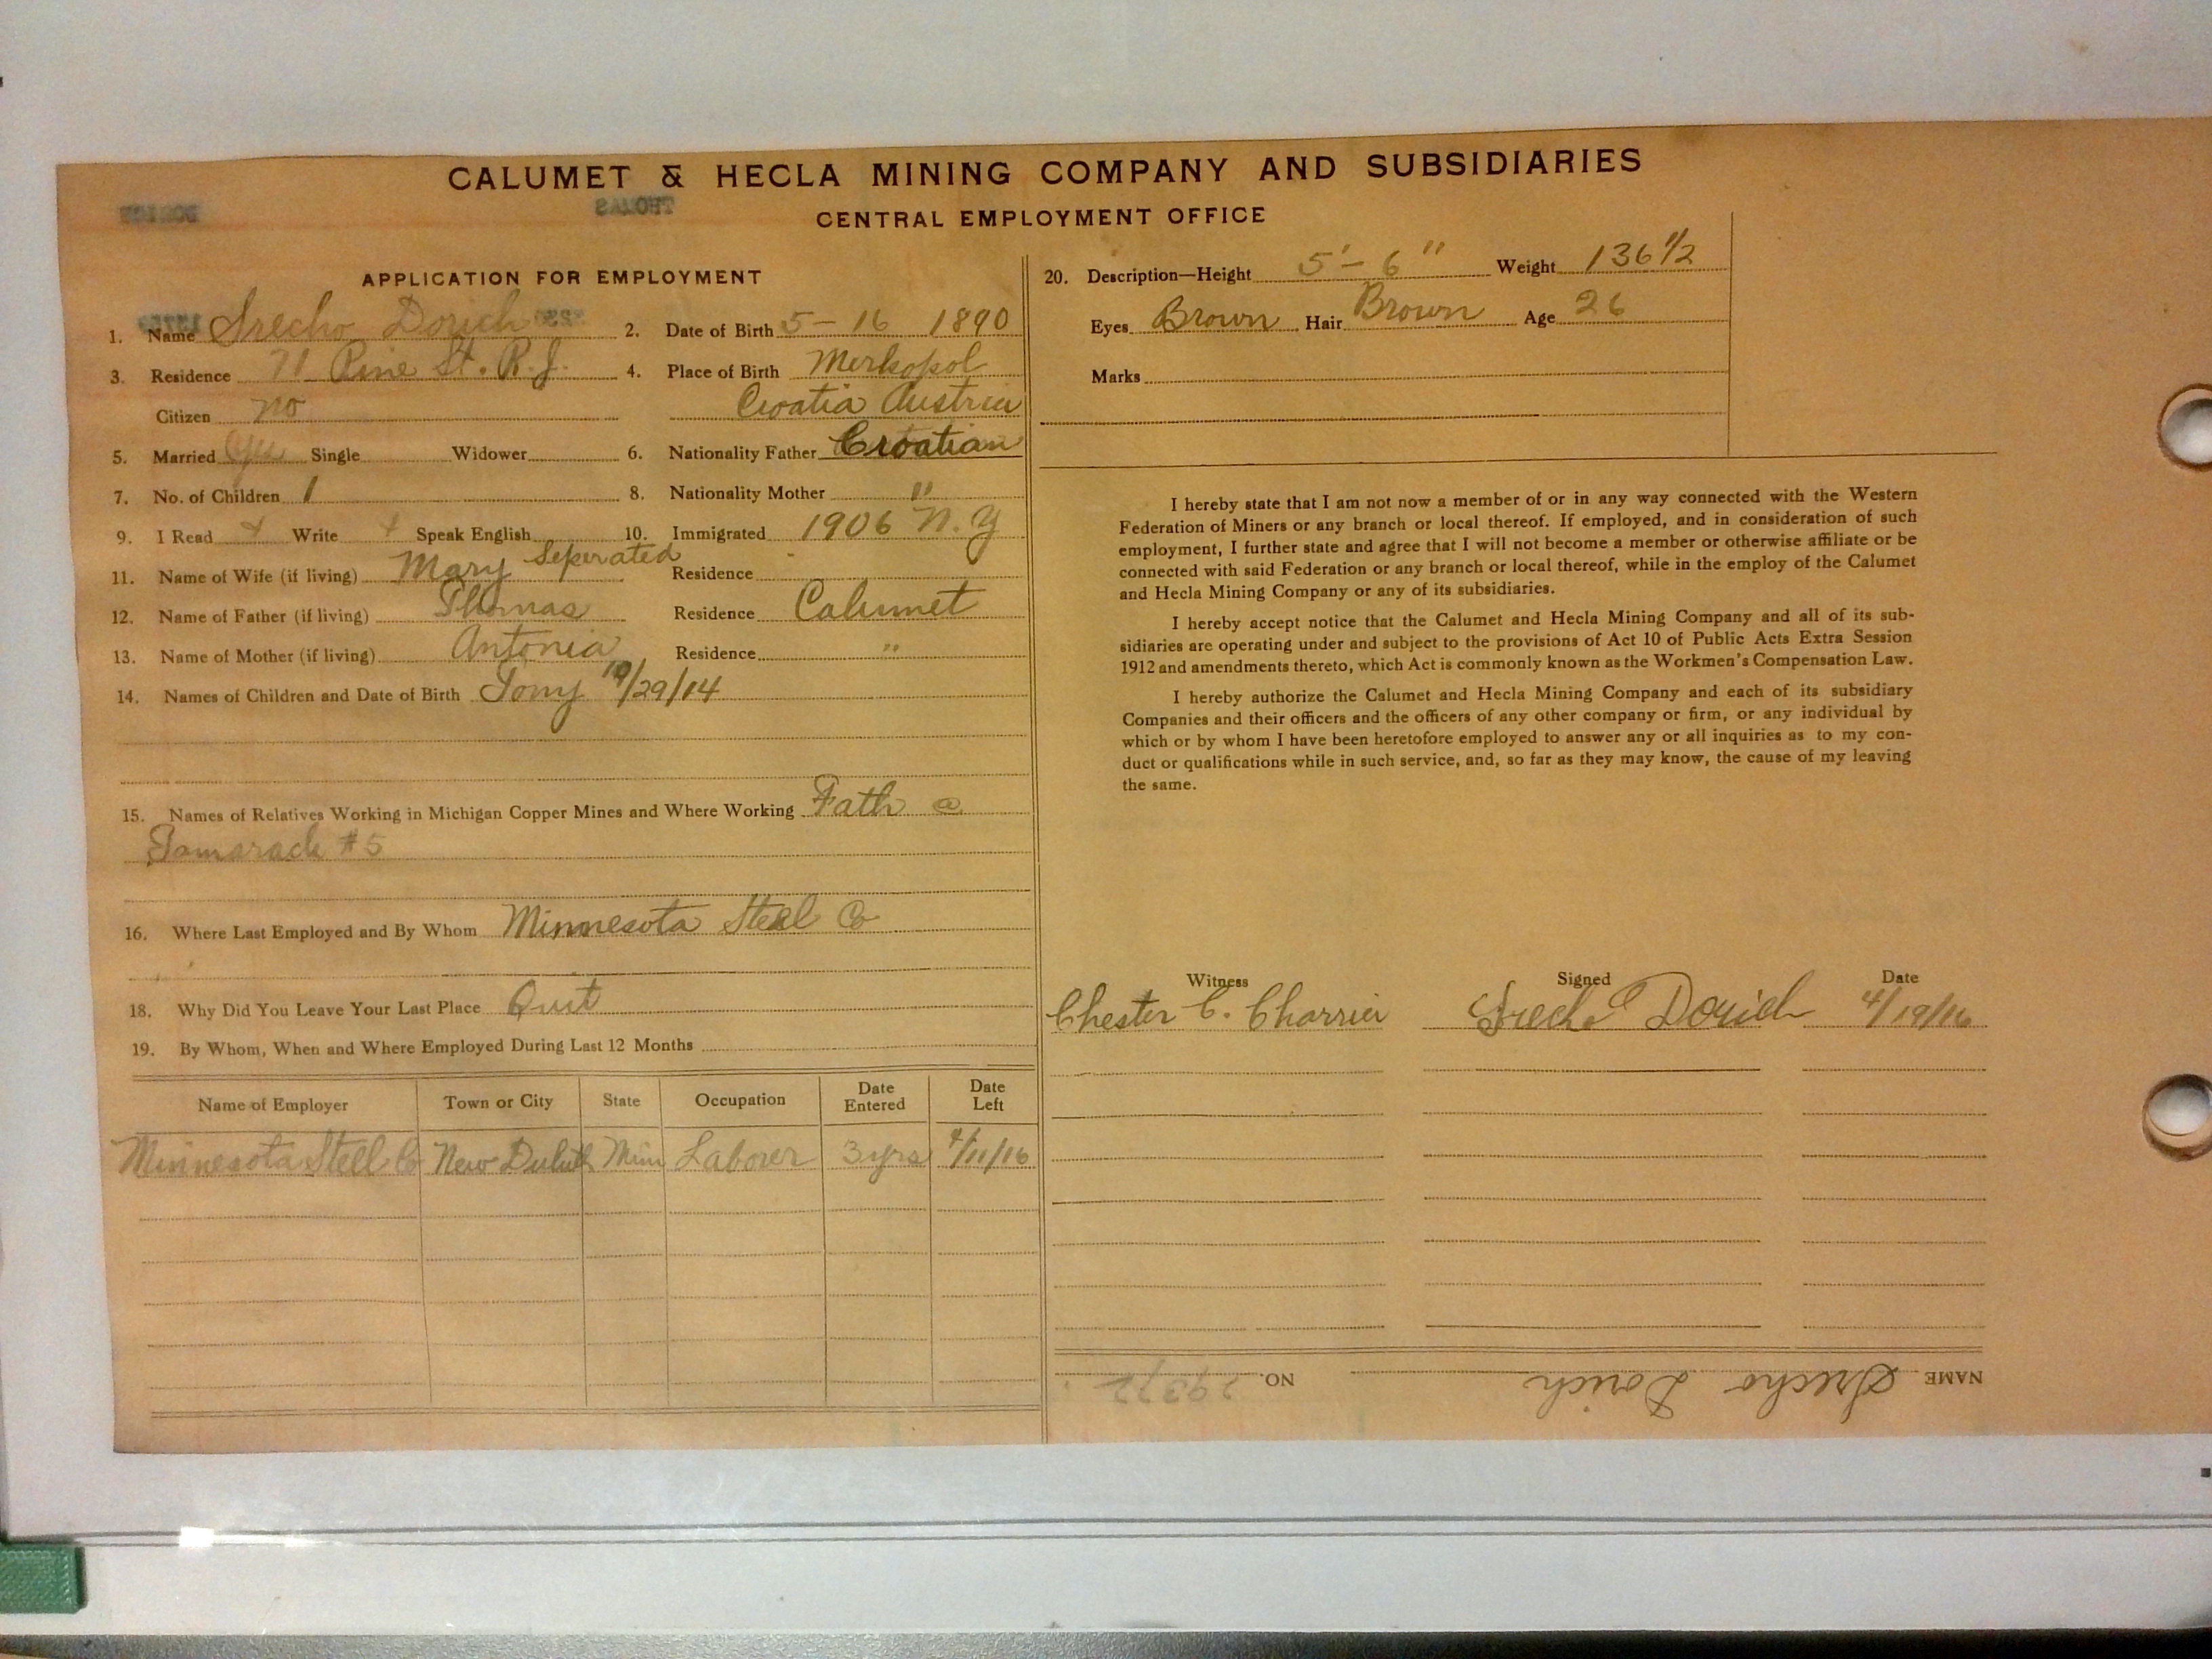 CALUMET & HECLA MINING COMPANY AND SUBSIDIARIES
THOMAS
CENTRAL EMPLOYMENT OFFICE
APPLICATION FOR EMPLOYMENT
1. Name Srecho Dorich 2. Date of Birth 5-16 1890
3. Residence 71 Pine St. R.J. 4. Place of Birth Merkopol
Citizen no Croatia Austria
5. Married Yes Single Widower 6. Nationality Father Croatian
7. No. of Children 1 8. Nationality Mother "
9. I Read Write Speak English 10. Immigrated 1906 N.Y
11. Name of Wife (if living) Mary Seperated Residence
12. Name of Father (if living) Thomas Residence Calumet
13. Name of Mother (if living) Antonia Residence "
14. Names of Children and Date of Birth Tony 10/29/14
15. Names of Relatives Working in Michigan Copper Mines and Where Working Fath @
Tamarack #5
16. Where Last Employed and By Whom Minnesota Steel Co
18. Why Did You Leave Your Last Place Quit
19. By Whom, When and Where Employed During Last 12 Months
Name of Employer Town or City State Occupation Date Entered Date Left
Minnesota Steel Co New Duluth Minn Laborer 3 yrs 4/11/16
20. Description—Height 5'-6" Weight 136 1/2
Eyes Brown Hair Brown Age 26
Marks
I hereby state that I am not now a member of or in any way connected with the Western
Federation of Miners or any branch or local thereof. If employed, and in consideration of such
employment, I further state and agree that I will not become a member or otherwise affiliate or be
connected with said Federation or any branch or local thereof, while in the employ of the Calumet
and Hecla Mining Company or any of its subsidiaries.
I hereby accept notice that the Calumet and Hecla Mining Company and all of its sub-
sidiaries are operating under and subject to the provisions of Act 10 of Public Acts Extra Session
1912 and amendments thereto, which Act is commonly known as the Workmen's Compensation Law.
I hereby authorize the Calumet and Hecla Mining Company and each of its subsidiary
Companies and their officers and the officers of any other company or firm, or any individual by
which or by whom I have been heretofore employed to answer any or all inquiries as to my con-
duct or qualifications while in such service, and, so far as they may know, the cause of my leaving
the same.
Witness Signed Date
Chester C. Charrier Srecho Dorich 4/19/16
NAME Srecho Dorich NO. 29372